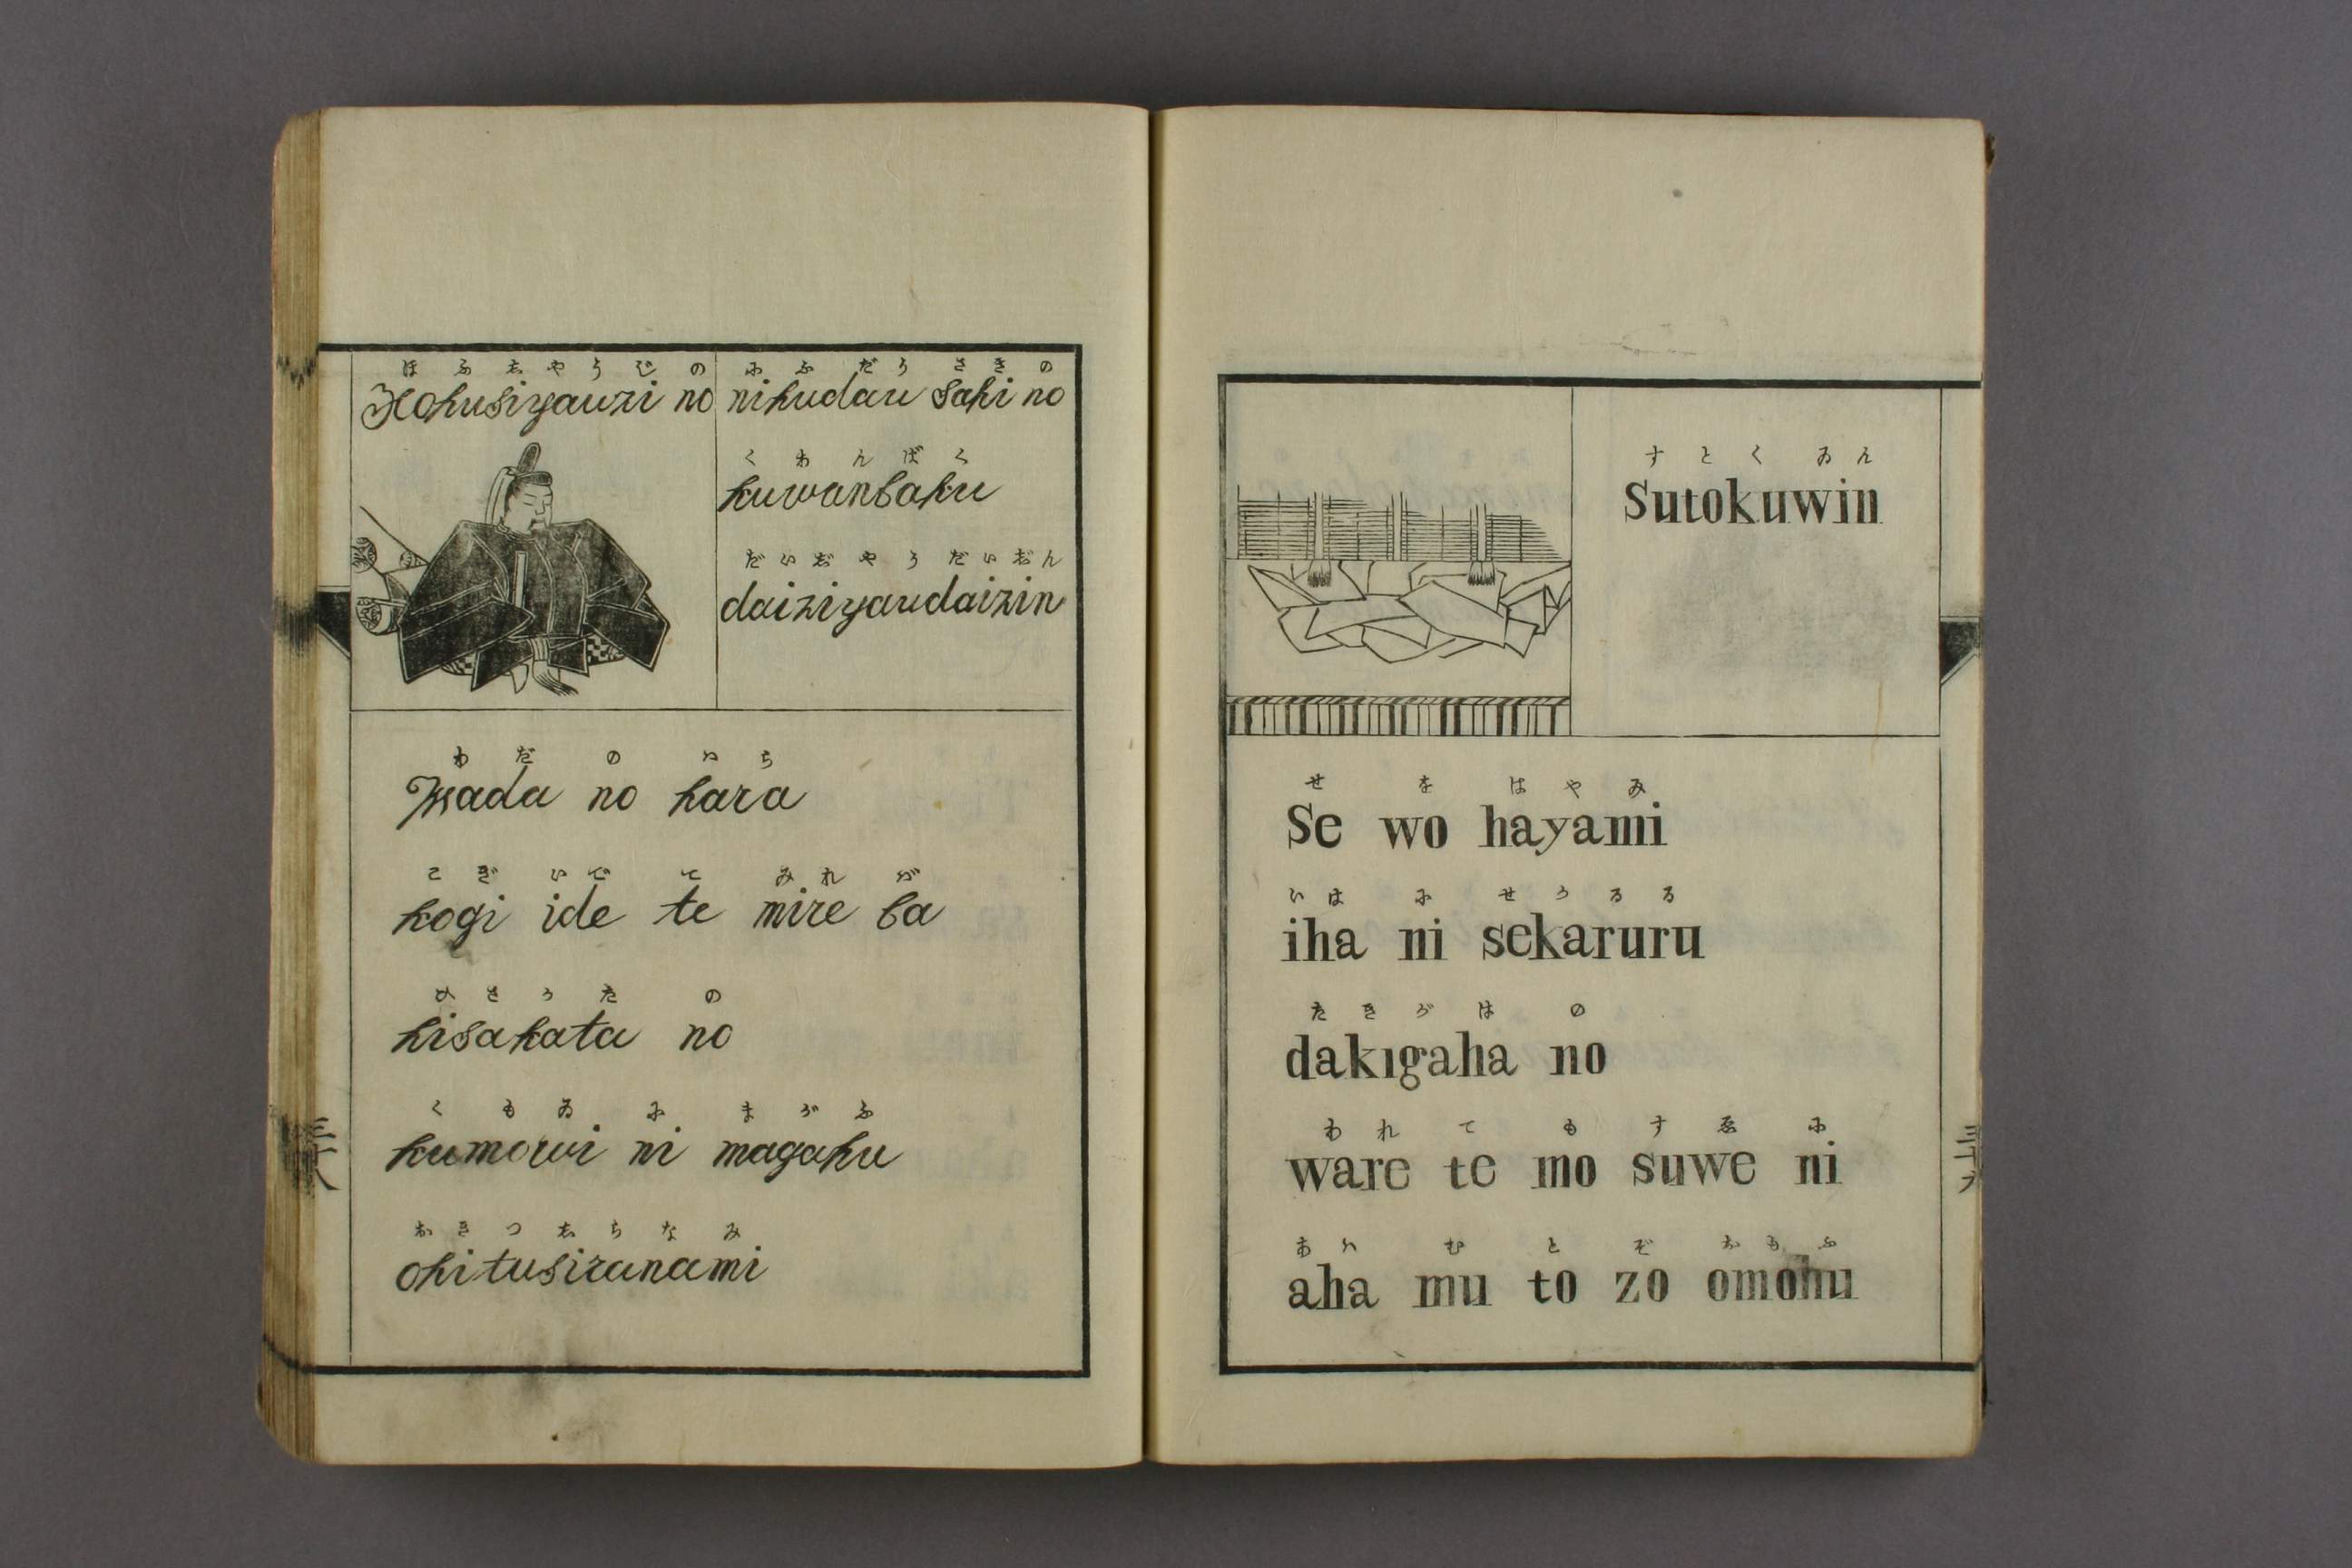 ほふしやうじの
Hohusiyauzi no
にふだうさきの
nihudau saki no
くわんばく
kuwanbaku
だいじやうだいじん
daiziyaudaizin
わだのハら
Wada no hara
こぎいでてみれバ
kogi ide te mire ba
ひさかたの
hisakata no
くもゐにまがふ
kumowi ni magahu
おきつしらなみ
okitusiranami
すとくゐん
Sutokuwin
せをはやみ
Se wo hayami
いはにせかるる
iha ni sekaruru
たきがはの
dakigaha no
われてもすゑに
ware te mo suwe ni
あハむとぞおもふ
aha mu to zo omohu